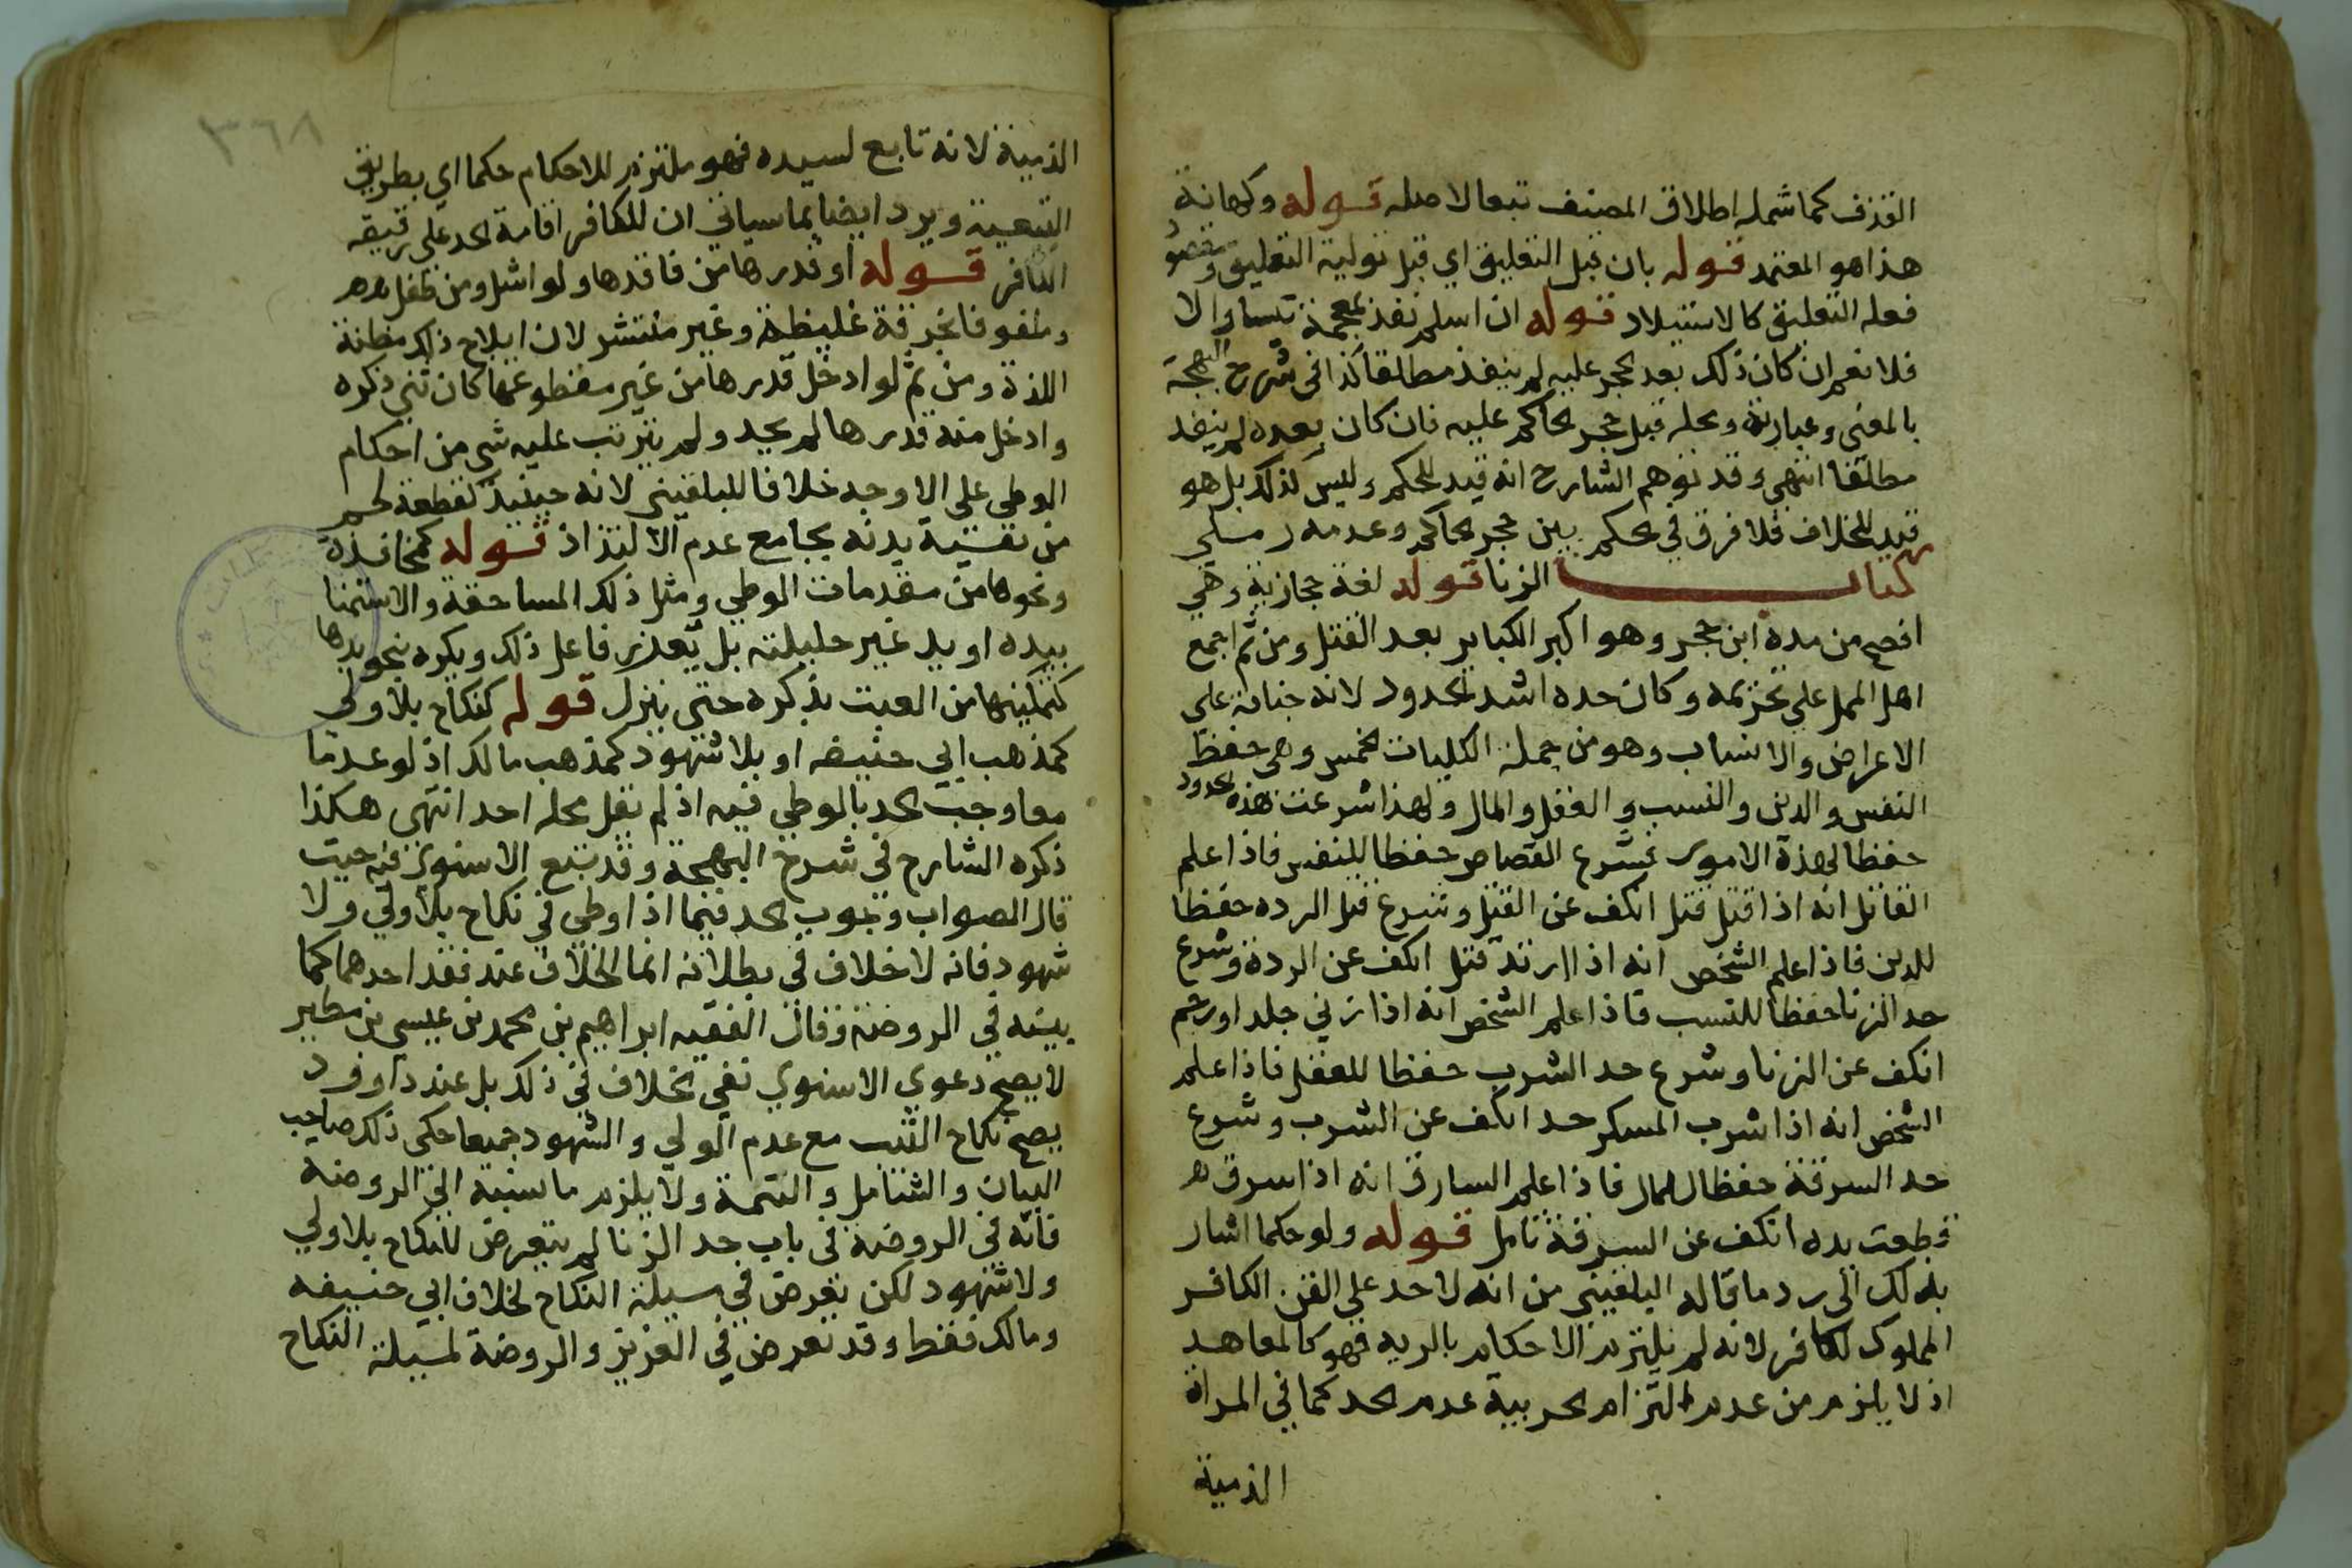 القذف كما شمله اطلاق المصنف تبعا لاصله قوله وكهانة
هذا هو المعتمد قوله بان قبل التعليق اي قبل تولية التعليق
فعله التعليق كالاستيلاد قوله ان اسلم نفذ بمعجمة والا
فلا نعم ان كان ذلك بعد الحجر عليه لم ينفذ مطلقا كذا في شرح البهجة
بالمعنى وعبارته ومحله قبل حجر الحاكم عليه فان كان بعده لم ينفذ
مطلقا انتهى وقد توهم الشارح انه قيد للحكم وليس كذلك بل هو
قيد للخلاف فلا فرق في الحكم بين حجر الحاكم وعدمه رملي
كتاب الزنا قوله لغة حجازية وهي
افصح من مده ابن حجر وهو اكبر الكباير بعد القتل ومن ثم اجمع
اهل الملل على تحريمه وكان حده اشد الحدود لانه جناية على
الاعراض والانساب وهو من جملة الكليات الخمس وهي حفظ
النفس والدين والنسب والعقل والمال ولهذا شرعت هذه الحدود
حفظا لهذه الامور فشرع القصاص حفظا للنفس فاذا علم
القاتل انه اذا قتل قتل انكف عن القتل وشرع قتل الرده حفظا
للدين فاذا علم الشخص انه اذا ارتد قتل انكف عن الردة وشرع
حد الزنا حفظا للنسب فاذا علم الشخص انه اذا زني جلد او رجم
انكف عن الزنا وشرع حد الشرب حفظا للعقل فاذا علم
الشخص انه اذا شرب المسكر حد انكف عن الشرب وشرع
حد السرقة حفظا للمال فاذا علم السارق انه اذا سرق
قطعت يده انكف عن السرقة تامل قوله ولو حكما اشار
بذلك الى رد ما قاله البلقيني من انه لا حد على القن الكافر
المملوك لكافر لانه لم يلتزم الاحكام بالديه فهو كالمعاهد
اذ لا يلزم من عدم التزام الحربية عدم الحد كما في المراة
الذمية
٣٦٨
الذمية لانه تابع لسيده فهو ملتزم للاحكام حكما اي بطريق
التبعية ويرد ايضا بما سياتي ان للكافر اقامة الحد على رقيقه
الكافر قوله او قدرها من فاقدها ولو اشل ومن طفل
وملفوفا بخرقة غليظة وغير منتشر لان ايلاج ذلك مظنة
اللذة ومن ثم لو ادخل قدرها من غير مقطوعها كان ثني ذكره
وادخل منه قدرها لم يحد ولم يترتب عليه شي من احكام
الوطي على الاوجه خلافا للبلقيني لانه حينيذ كقطعة لحم
من بقية بدنه بجامع عدم الالتذاذ قوله كمفاخذة
ونحوها من مقدمات الوطي ومثل ذلك المساحقة والاستمنا
بيده او يد غير حليلته بل يعذر فاعل ذلك ويكره بنحو يدها
كتمكينها من العبث بذكره حتى ينزل قوله كنكاح بلا ولي
كمذهب ابي حنيفه او بلا شهود كمذهب مالك اذ لو عدما
معا وجب الحد بالوطي فيه اذ لم يقل بحله احد انتهى هكذا
ذكره الشارح في شرح البهجة وقد تبع الاسنوي فيه حيث
قال الصواب وجوب الحد فيما اذا وطي في نكاح بلا ولي ولا
شهود فانه لا خلاف في بطلانه انما الخلاف عند فقد احدهما كما
بينه في الروضة وقال الفقيه ابراهيم بن محمد بن عيسى بن مطير
لا يصح دعوى الاسنوي نفي الخلاف في ذلك بل عند داوود
يصح نكاح الثيب مع عدم الولي والشهود جميعا حكى ذلك صاحب
البيان والشامل والتتمة ولا يلزم ما نسبه الى الروضة
فانه في الروضة في باب حد الزنا لم يتعرض للنكاح بلا ولي
ولا شهود لكن تعرض في مسيلة النكاح لخلاف ابي حنيفه
ومالك فقط وقد تعرض في العزيز والروضة لمسيلة النكاح